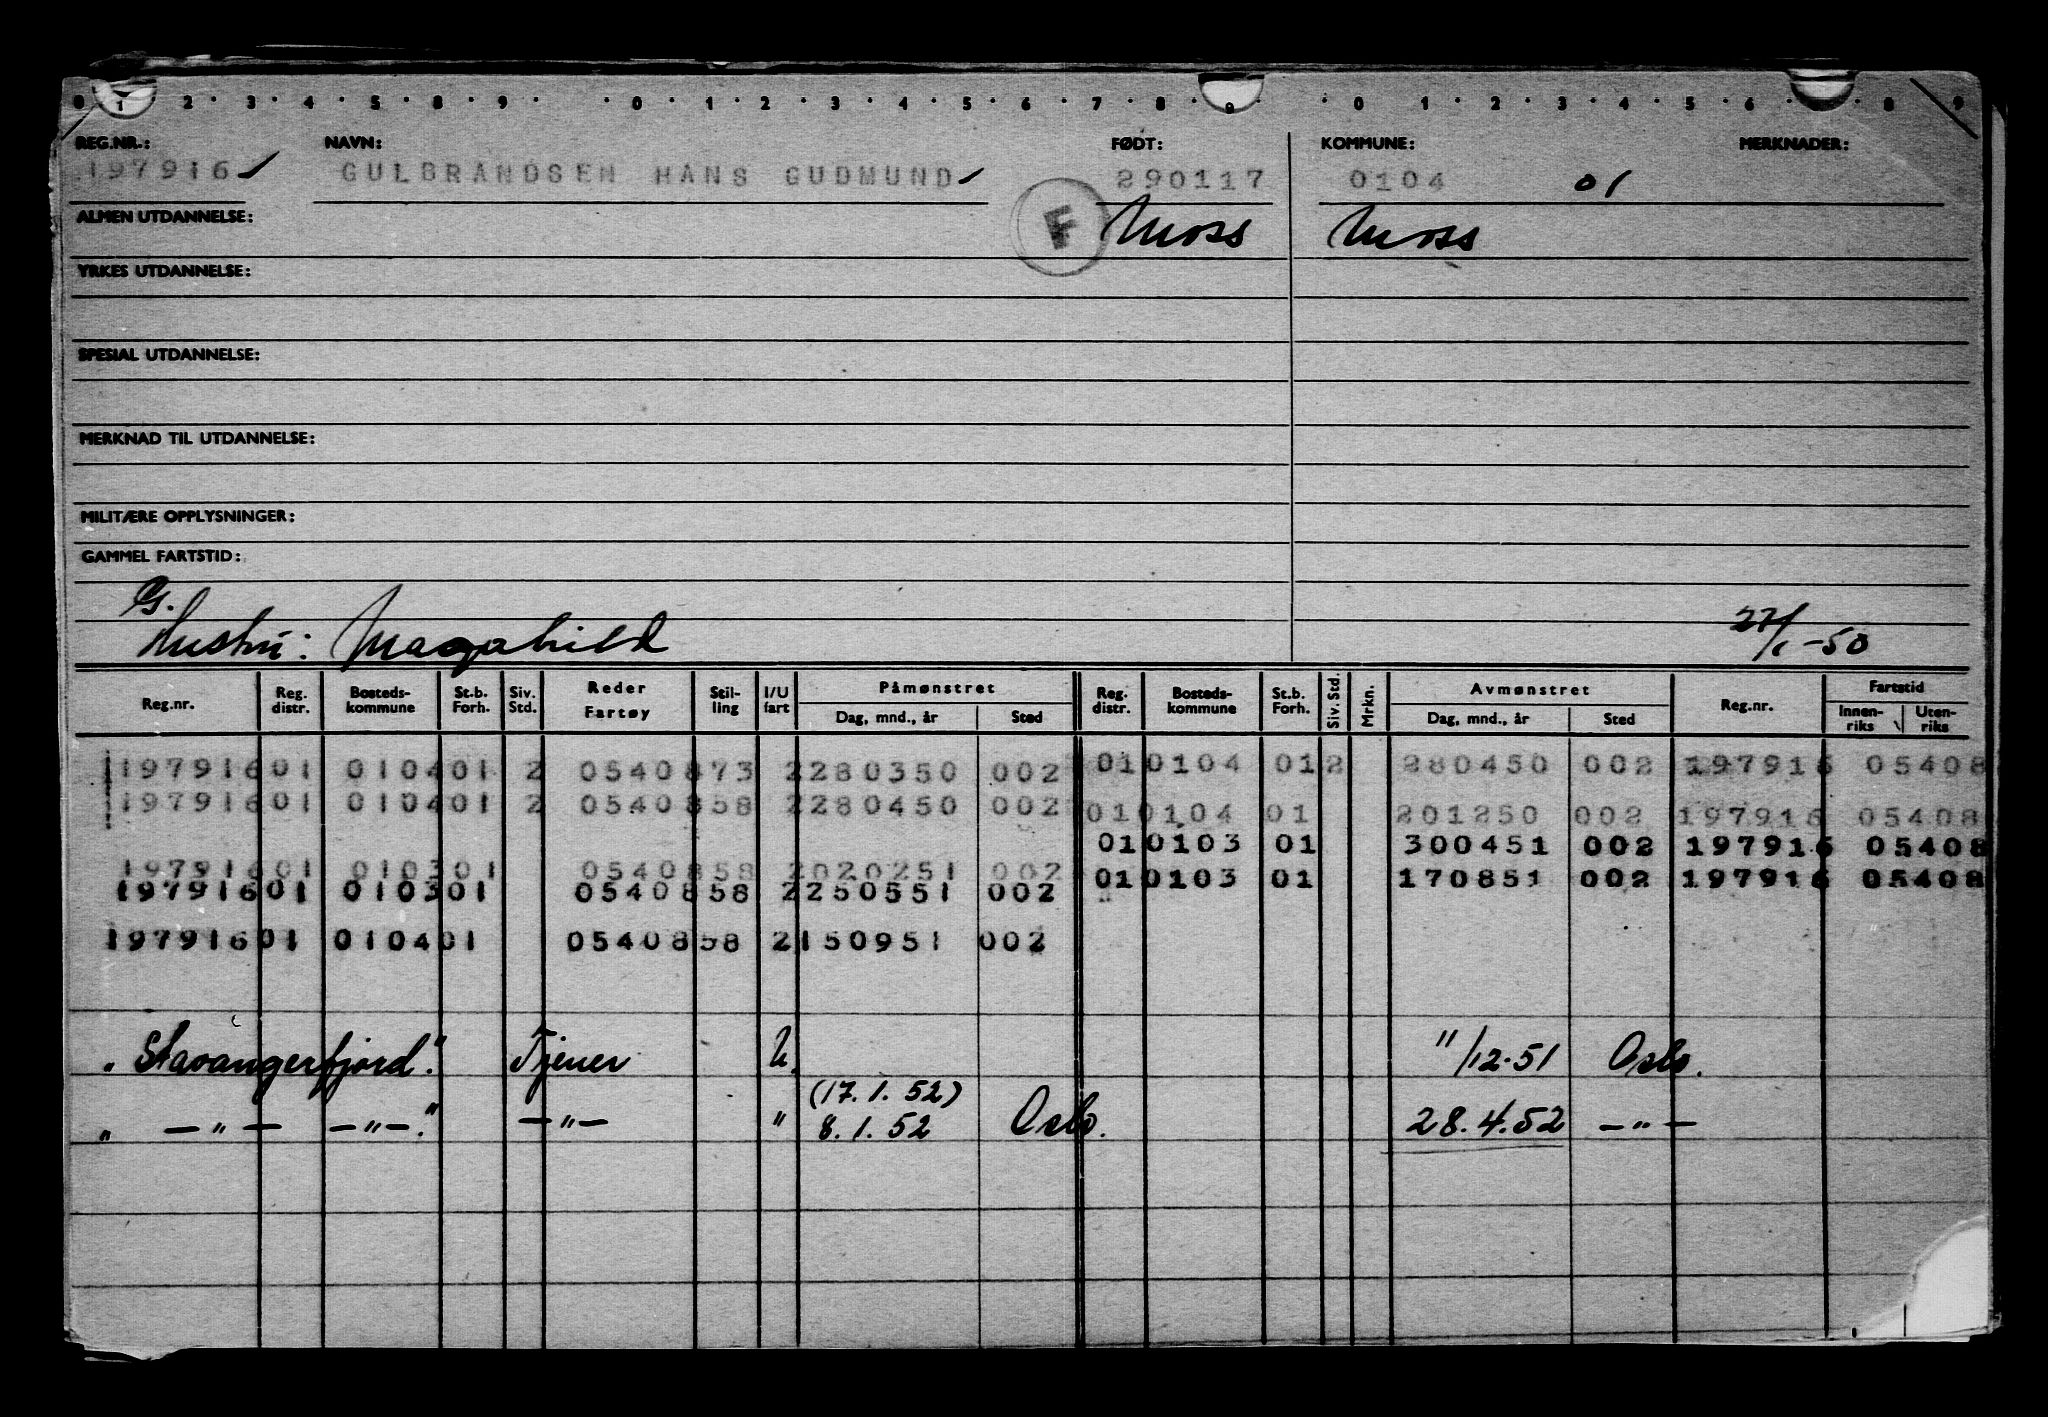 0 1 2 3 4 5 8 9 0 1 2 3 4 5 6 7 8 9 0 1 2 3 4 5 6 8 9
REG.NR.: NAVN: FØDT: KOMMUNE: MERKNADER:
197916 GULBRANDSEN HANS GUDMUND 290117 0104 01
ALMEN UTDANNELSE: F Moss Moss
YRKES UTDANNELSE:
SPESIAL UTDANNELSE:
MERKNAD TIL UTDANNELSE:
MILITÆRE OPPLYSNINGER:
GAMMEL FARTSTID:
G.
Hustru: Magnhild 27/1-50
Reg.nr. Reg. distr. Bosteds-kommune St.b. Forh. Siv. Std. Reder Fartøy Stil-ling I/U fart Påmønstret Dag, mnd., år Sted Reg. distr. Bosteds-kommune St.b. Forh. Siv. Std. Mrkn. Avmønstret Dag, mnd., år Sted Reg.nr. Fartstid Innen-riks Uten-riks
197916 01 0104 01 2 0540873 2 280350 002 01 0104 01 2 280450 002 197916 05408
197916 01 0104 01 2 0540858 2 280450 002 01 0104 01 201250 002 197916 05408
01 0103 01 300451 002 197916 05408
197916 01 0103 01 0540858 2 020251 002
197916 01 0103 01 0540858 2 250551 002 01 0103 01 170851 002 197916 05408
197916 01 0104 01 0540858 2 150951 002
"Stavangerfjord". Tjener U. 11/12.51 Oslo.
(17.1.52)
" —"— —"—." —"— " 8.1.52 Oslo. 28.4.52 —"—